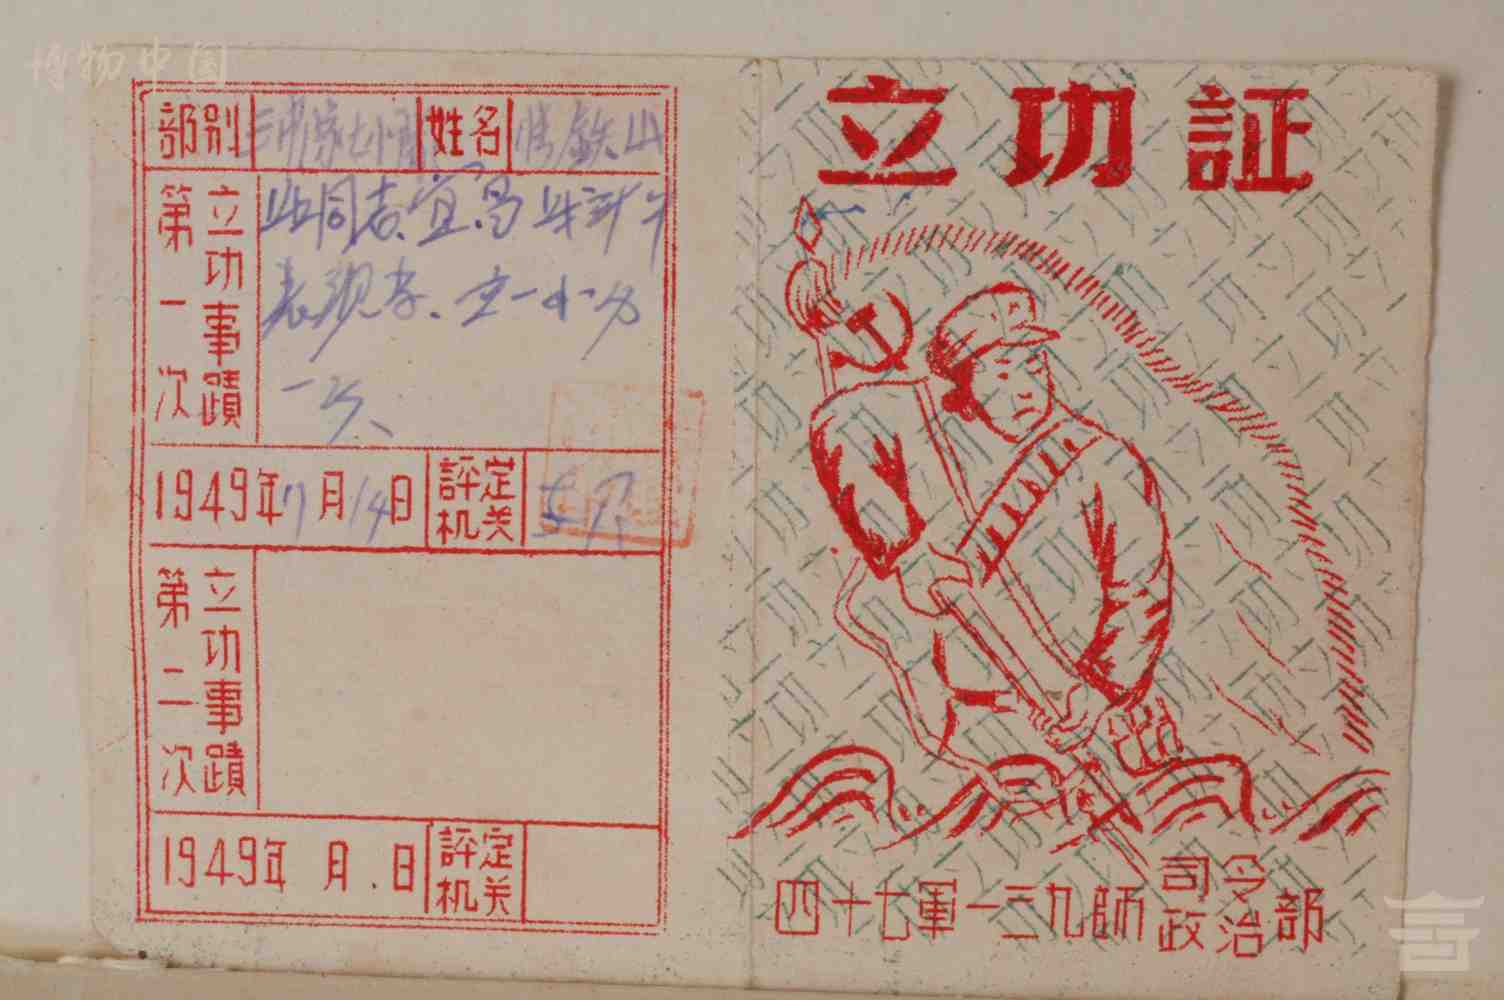 博物中国
部别
姓名
鉄山
第一次
立功事蹟
此同志宜昌
表现好.立一小功
一次
1949年7月14日
評定机关
第二次
立功事蹟
1949年 月.日
評定机关
立功証
四十七軍一三九師司令政治部